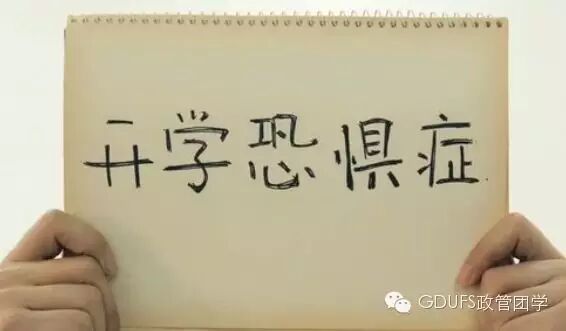 开学恐惧症
GDUFS政管团学